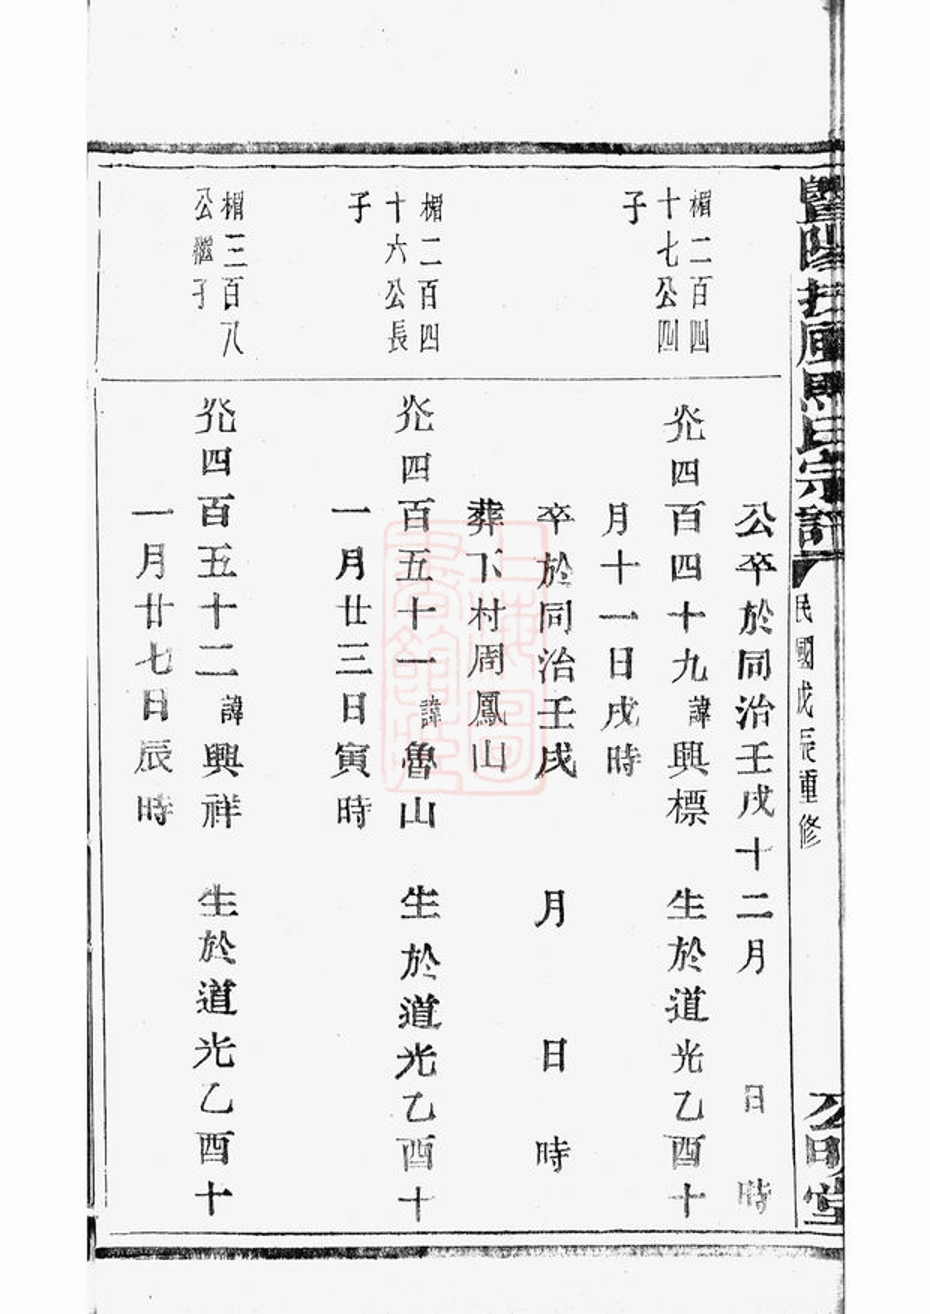 暨陽扶風馬氏宗譜
民國戊辰重修
公明堂
公卒於同治壬戌十二月 日 時
楣二百四
十七公四
子
灮四百四十九諱興標 生於道光乙酉十
月十一日戌時
卒於同治壬戌 月 日 時
葬下村周鳳山
楣二百四
十六公長
子
灮四百五十一諱魯山 生於道光乙酉十
一月廿三日寅時
楣三百八
公繼子
灮四百五十二諱興祥 生於道光乙酉十
一月廿七日辰時